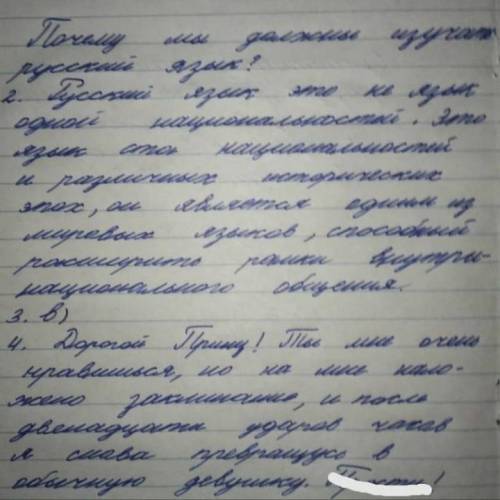 Почему мы должны изучать
русский язык?
2. Русский язык это не язык
одной национальностей. Это
язык ста национальностей
и различных исторических
эпох, он является одним из
мировых языков, способный
расширить рамки внутри-
национального общения.
3. в)
4. Дорогой Принц! Ты мне очень
нравишься, но на мне нало-
жено заклинание, и после
двенадцати ударов часов
я снова превращусь в
обычную девушку.